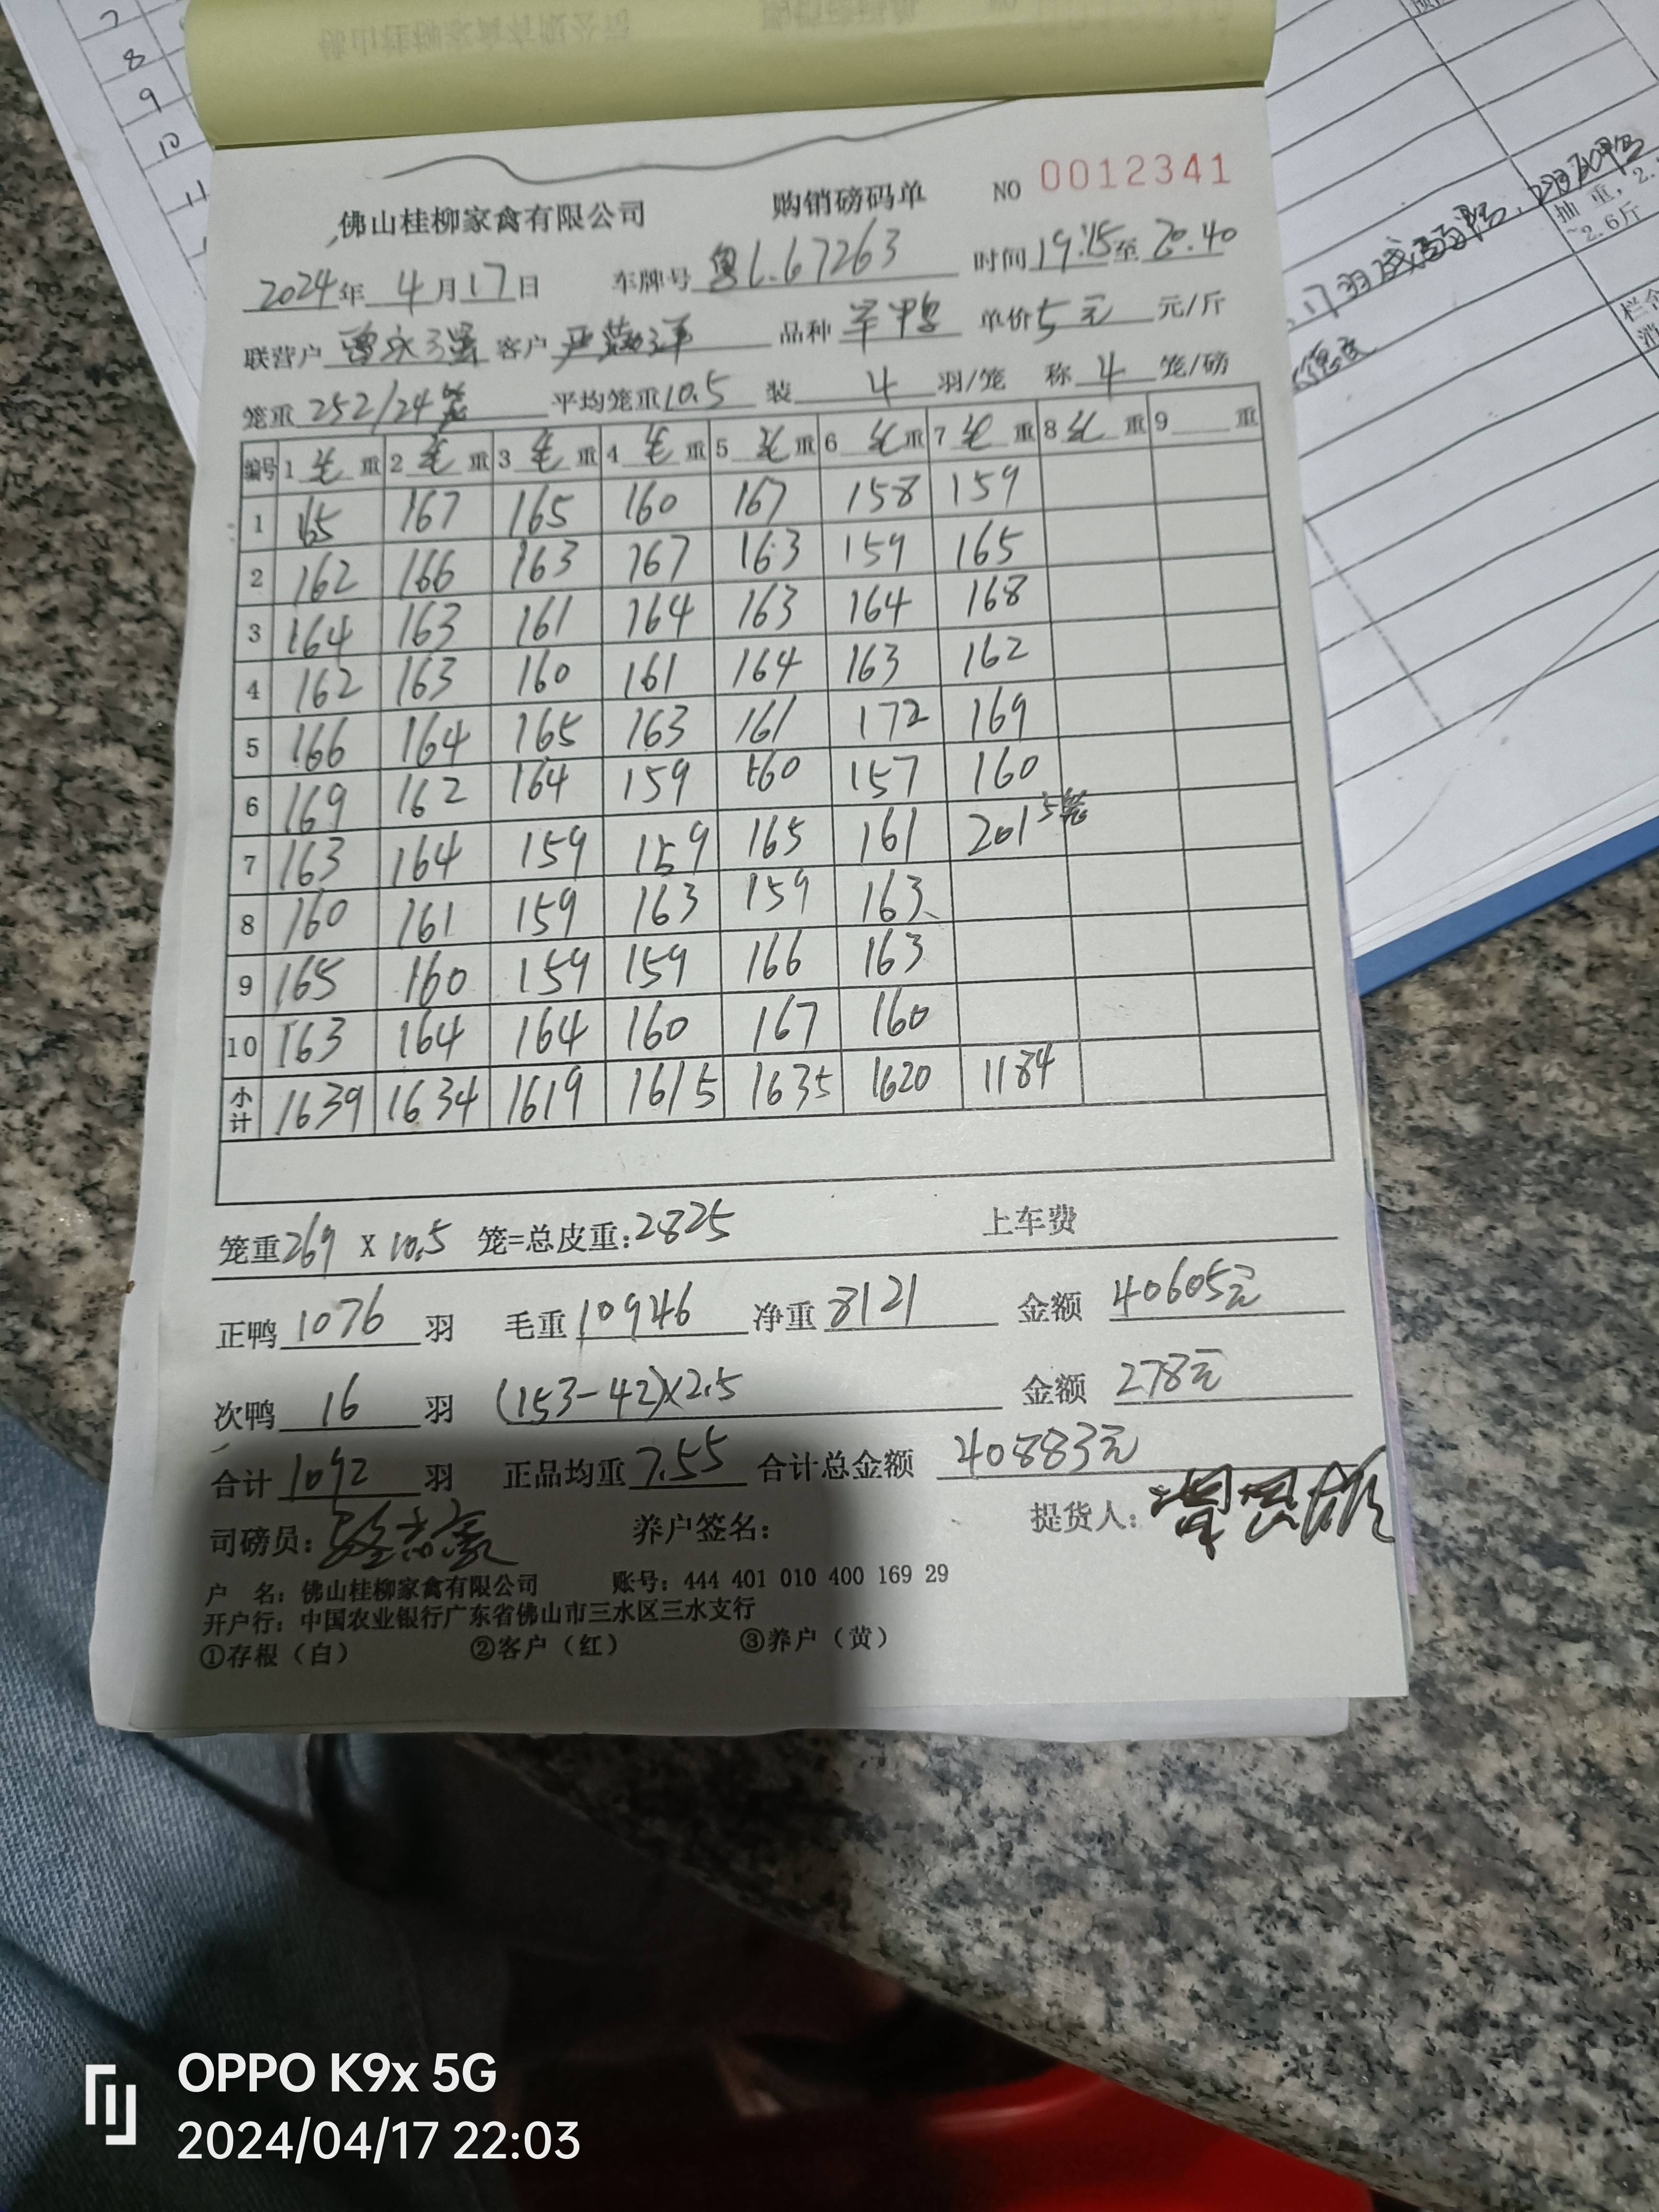 佛山桂柳家禽有限公司 购销磅码单 NO 0012341
2024年 4月17日 车牌号 粤L.67263 时间19:15至20.40
联营户 曾永强 客户 品种 单价5元 元/斤
笼重 252/24笼 平均笼重10.5 装 4 羽/笼 称 4 笼/磅
编号 1 毛 重 2 毛 重 3 毛 重 4 毛 重 5 毛 重 6 毛 重 7 毛 重 8 毛 重 9 重
1 165 167 165 160 167 158 159
2 162 166 163 167 163 159 165
3 164 163 161 164 163 164 168
4 162 163 160 161 164 163 162
5 166 164 165 163 161 172 169
6 169 162 164 159 160 157 160
7 163 164 159 159 165 161 201 5笼
8 160 161 159 163 159 163
9 165 160 159 159 166 163
10 163 164 164 160 167 160
小计 1639 1634 1619 1615 1635 1620 1184
笼重269 X 10.5 笼=总皮重:2825 上车费
正鸭 1076 羽 毛重 10946 净重 8121 金额 40605元
次鸭 16 羽 (153-42)X2.5 金额 278元
合计 1092 羽 正品均重 7.55 合计总金额 40883元
司磅员: 养户签名: 提货人:
户 名: 佛山桂柳家禽有限公司 账号: 444 401 010 400 169 29
开户行: 中国农业银行广东省佛山市三水区三水支行
①存根（白） ②客户（红） ③养户（黄）
7
8
9
10
11
抽重, 2.
~2.6斤
OPPO K9x 5G
2024/04/17 22:03